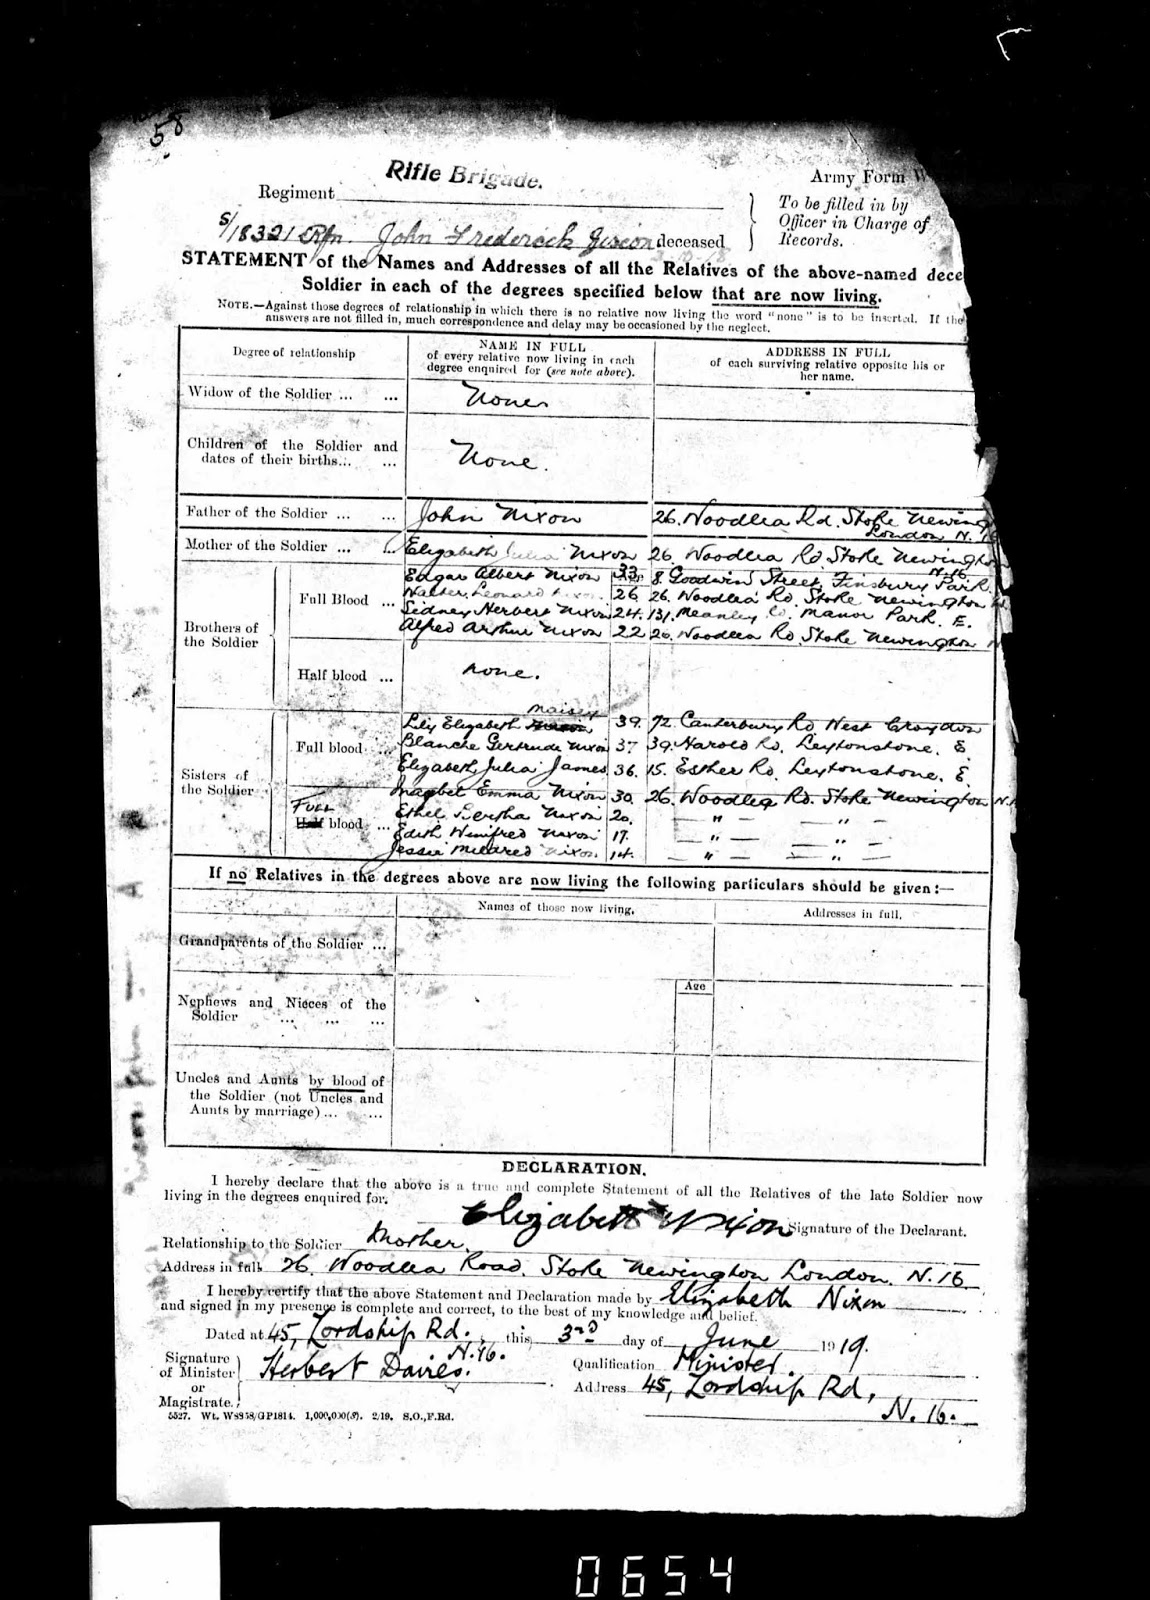 58
Rifle Brigade.
Regiment
Army Form W
To be filled in by
Officer in Charge of
Records.
S/18321 Rfn. John Frederick deceased
STATEMENT of the Names and Addresses of all the Relatives of the above-named dece
Soldier in each of the degrees specified below that are now living.
NOTE.—Against those degrees of relationship in which there is no relative now living the word "none" is to be inserted. If the
answers are not filled in, much correspondence and delay may be occasioned by the neglect.
Degree of relationship
NAME IN FULL
of every relative now living in each
degree enquired for (see note above).
ADDRESS IN FULL
of each surviving relative opposite his or
her name.
Widow of the Soldier ... ... None
Children of the Soldier and
dates of their births... ... None.
Father of the Soldier ... ... John Nixon 26. Woodlea Rd. Stoke Newing
London N. 16
Mother of the Soldier ... ... Elizabeth Julia Nixon 26 Woodlea Rd. Stoke Newington
N.16.
Brothers of
the Soldier
Full Blood ...
Edgar Albert Nixon 33 8. Goodwin Street, Finsbury Park.
Walter Leonard Nixon 26 26. Woodlea Rd. Stoke Newington
Sidney Herbert Nixon 24. 131. Meanley Rd. Manor Park. E.
Alfred Arthur Nixon 22 26. Woodlea Rd. Stoke Newington N
Half blood ... none.
Sisters of
the Soldier
Full blood ...
Maisey
Lily Elizabeth Nixon 39. 72. Canterbury Rd West Croydon
Blanche Gertrude Nixon 37 39. Harold Rd. Leytonstone. E
Elizabeth Julia James 36. 15. Esther Rd. Leytonstone. E
FULL
Half blood ...
Maybel Emma Nixon 30. 26. Woodlea Rd. Stoke Newington N.
Ethel Bertha Nixon 20. — " — — " —
Edith Winifred Nixon 17. — " — — " —
Jessie Mildred Nixon. 14. — " — — " —
If no Relatives in the degrees above are now living the following particulars should be given:—
Names of those now living.
Addresses in full.
Grandparents of the Soldier ...
Age
Nephews and Nieces of the
Soldier ... ... ...
Uncles and Aunts by blood of
the Soldier (not Uncles and
Aunts by marriage)... ...
DECLARATION.
I hereby declare that the above is a true and complete Statement of all the Relatives of the late Soldier now
living in the degrees enquired for.
Elizabeth Nixon Signature of the Declarant.
Relationship to the Soldier Mother.
Address in full 26. Woodlea Road. Stoke Newington London. N. 16
I hereby certify that the above Statement and Declaration made by Elizabeth Nixon
and signed in my presence is complete and correct, to the best of my knowledge and belief.
Dated at 45, Lordship Rd., this 3rd day of June 1919.
N.16.
Signature
of Minister
or
Magistrate.
Herbert Davies.
Qualification Minister.
Address 45, Lordship Rd,
N. 16.
5527. Wt. W8958/GP1814. 1,000,000(S). 2/19. S.O.,F.Rd.
0654